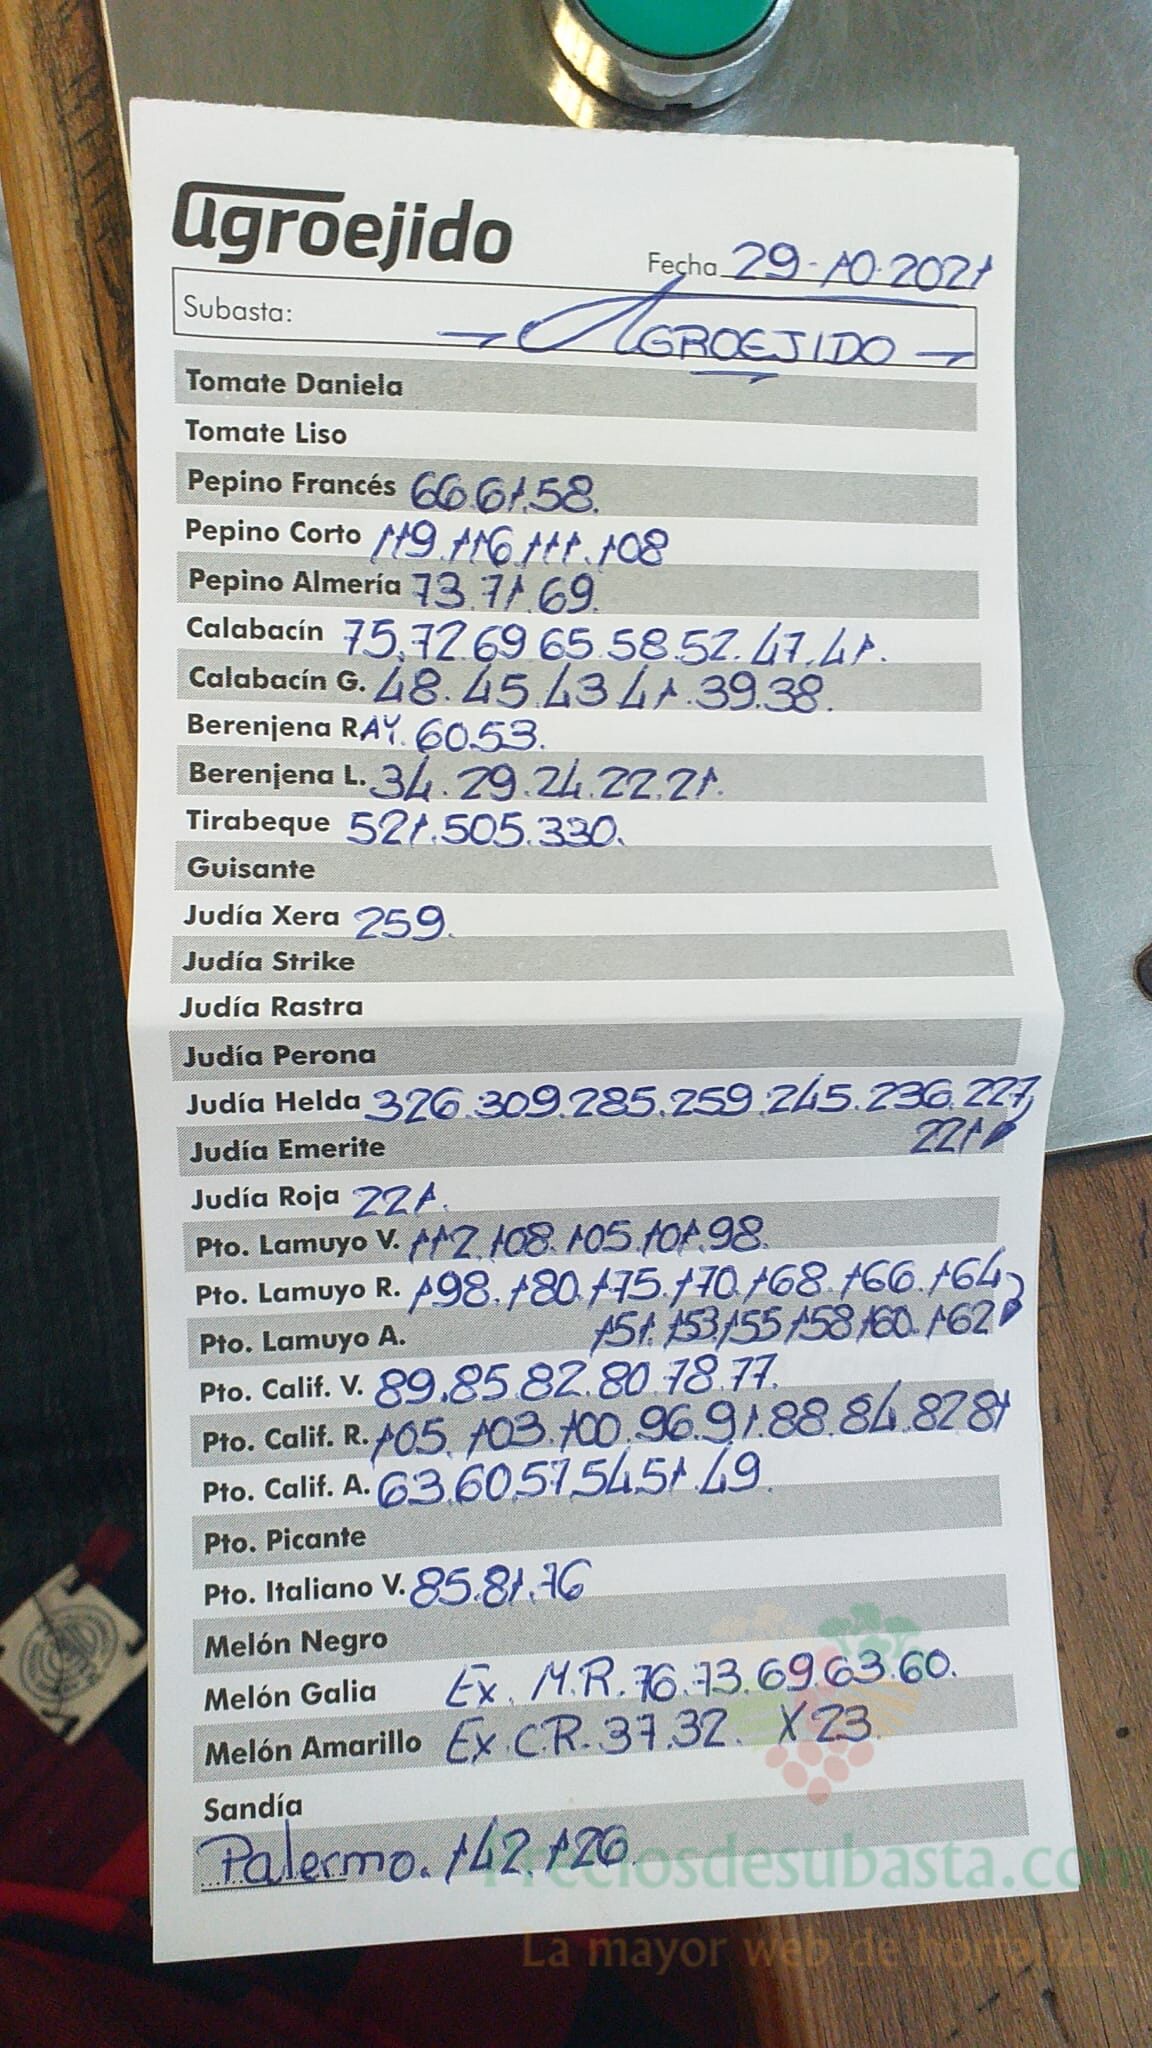 agroejido
Fecha 29-10-2021
Subasta: AGROEJIDO
Tomate Daniela
Tomate Liso
Pepino Francés 66.61.58.
Pepino Corto 119.116.111.108
Pepino Almería 73.71.69.
Calabacín 75.72.69 65.58.52.47.41.
Calabacín G. 48.45.43 41.39.38.
Berenjena RAY. 60.53.
Berenjena L. 34.29.24.22.21.
Tirabeque 521.505.330.
Guisante
Judía Xera 259.
Judía Strike
Judía Rastra
Judía Perona
Judía Helda 326.309.285.259.245.236.227,
Judía Emerite 221
Judía Roja 221.
Pto. Lamuyo V. 112.108.105.101.98.
Pto. Lamuyo R. 198.180.175.170.168.166.164
Pto. Lamuyo A. 151.153.155.158.160.162
Pto. Calif. V. 89.85.82.80.78.77.
Pto. Calif. R. 105.103.100.96.91.88.84.82 81
Pto. Calif. A. 63.60.57.54.51.49.
Pto. Picante
Pto. Italiano V. 85.81.76
Melón Negro
Melón Galia Ex. M.R. 76.73.69.63.60.
Melón Amarillo Ex.C.R. 37.32. X 23.
Sandía
Palermo. 142.126.
Preciosdesubasta.com
La mayor web de hortalizas